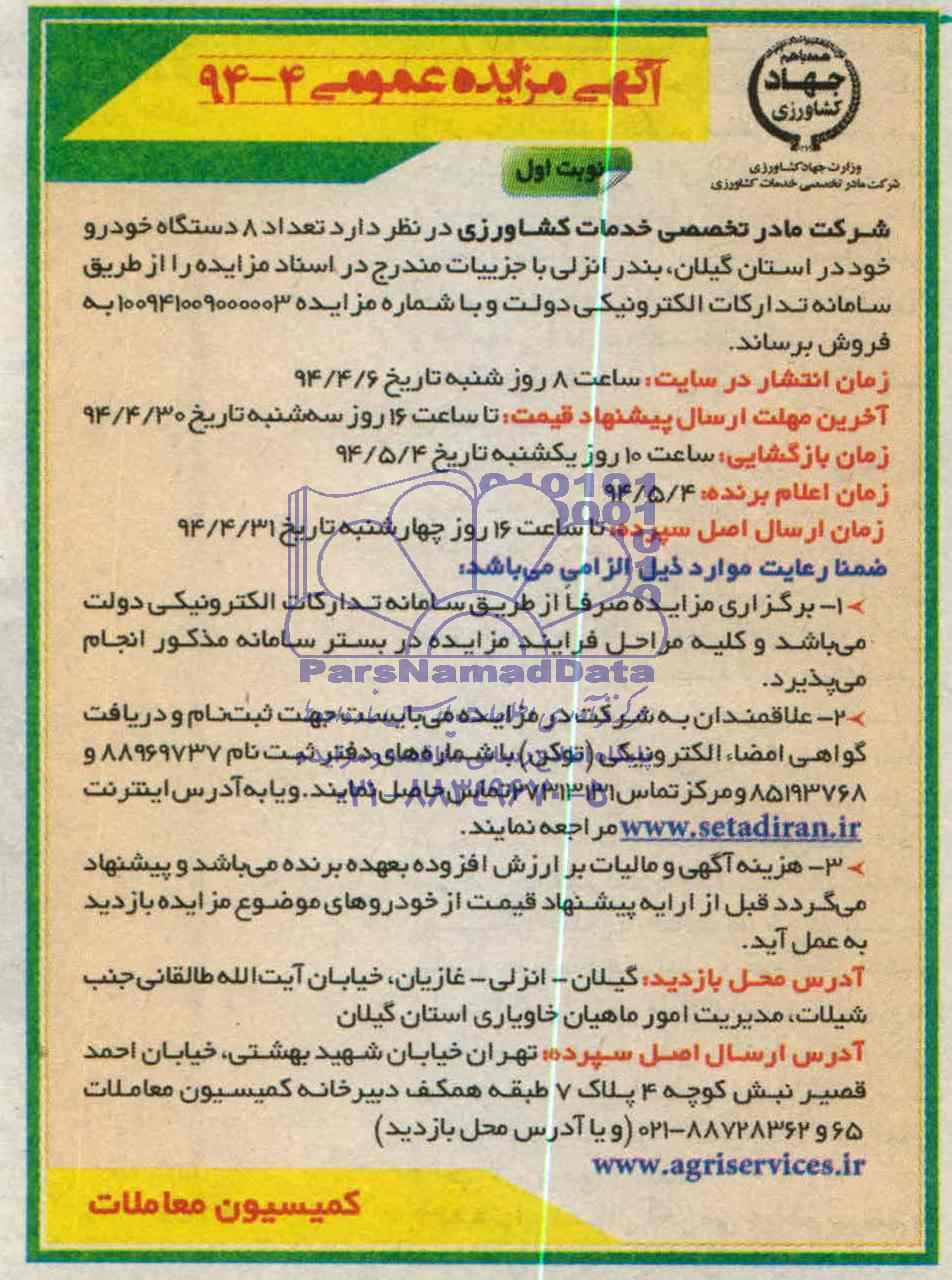 همه با هم
جهاد
کشاورزی
وزارت جهاد کشاورزی
شرکت مادر تخصصی خدمات کشاورزی
آگهی مزایده عمومی ۴-۹۴
نوبت اول
شرکت مادر تخصصی خدمات کشاورزی در نظر دارد تعداد ۸ دستگاه خودرو
خود در استان گیلان، بندر انزلی با جزییات مندرج در اسناد مزایده را از طریق
سامانه تدارکات الکترونیکی دولت و با شماره مزایده ۱۰۰۹۴۱۰۰۹۰۰۰۰۰۳ به
فروش برساند.
زمان انتشار در سایت: ساعت ۸ روز شنبه تاریخ ۹۴/۴/۶
آخرین مهلت ارسال پیشنهاد قیمت: تا ساعت ۱۶ روز سه‌شنبه تاریخ ۹۴/۴/۳۰
زمان بازگشایی: ساعت ۱۰ روز یکشنبه تاریخ ۹۴/۵/۴
زمان اعلام برنده: ۹۴/۵/۴
زمان ارسال اصل سپرده: تا ساعت ۱۶ روز چهارشنبه تاریخ ۹۴/۴/۳۱
ضمنا رعایت موارد ذیل الزامی می‌باشد:
۱- برگزاری مزایده صرفاً از طریق سامانه تدارکات الکترونیکی دولت
می‌باشد و کلیه مراحل فرایند مزایده در بستر سامانه مذکور انجام
می‌پذیرد.
ParsNamadData
۲- علاقمندان به شرکت در مزایده می‌بایست جهت ثبت‌نام و دریافت
گواهی امضاء الکترونیکی (توکن) با شماره‌های دفتر ثبت نام ۸۸۹۶۹۷۳۷ و
۸۵۱۹۳۷۶۸ و مرکز تماس ۲۷۳۱۳۱۳۱ تماس حاصل نمایند. و یا به آدرس اینترنت
۰۲۱-۸۸۳۴۹۶۷۰-۵
www.setadiran.ir مراجعه نمایند.
۳- هزینه آگهی و مالیات بر ارزش افزوده بعهده برنده می‌باشد و پیشنهاد
می‌گردد قبل از ارایه پیشنهاد قیمت از خودروهای موضوع مزایده بازدید
به عمل آید.
آدرس محل بازدید: گیلان - انزلی - غازیان، خیابان آیت‌الله طالقانی جنب
شیلات، مدیریت امور ماهیان خاویاری استان گیلان
آدرس ارسال اصل سپرده: تهران خیابان شهید بهشتی، خیابان احمد
قصیر نبش کوچه ۴ پلاک ۷ طبقه همکف دبیرخانه کمیسیون معاملات
۶۵ و ۸۸۷۲۸۳۶۲-۰۲۱ (و یا آدرس محل بازدید)
www.agriservices.ir
کمیسیون معاملات